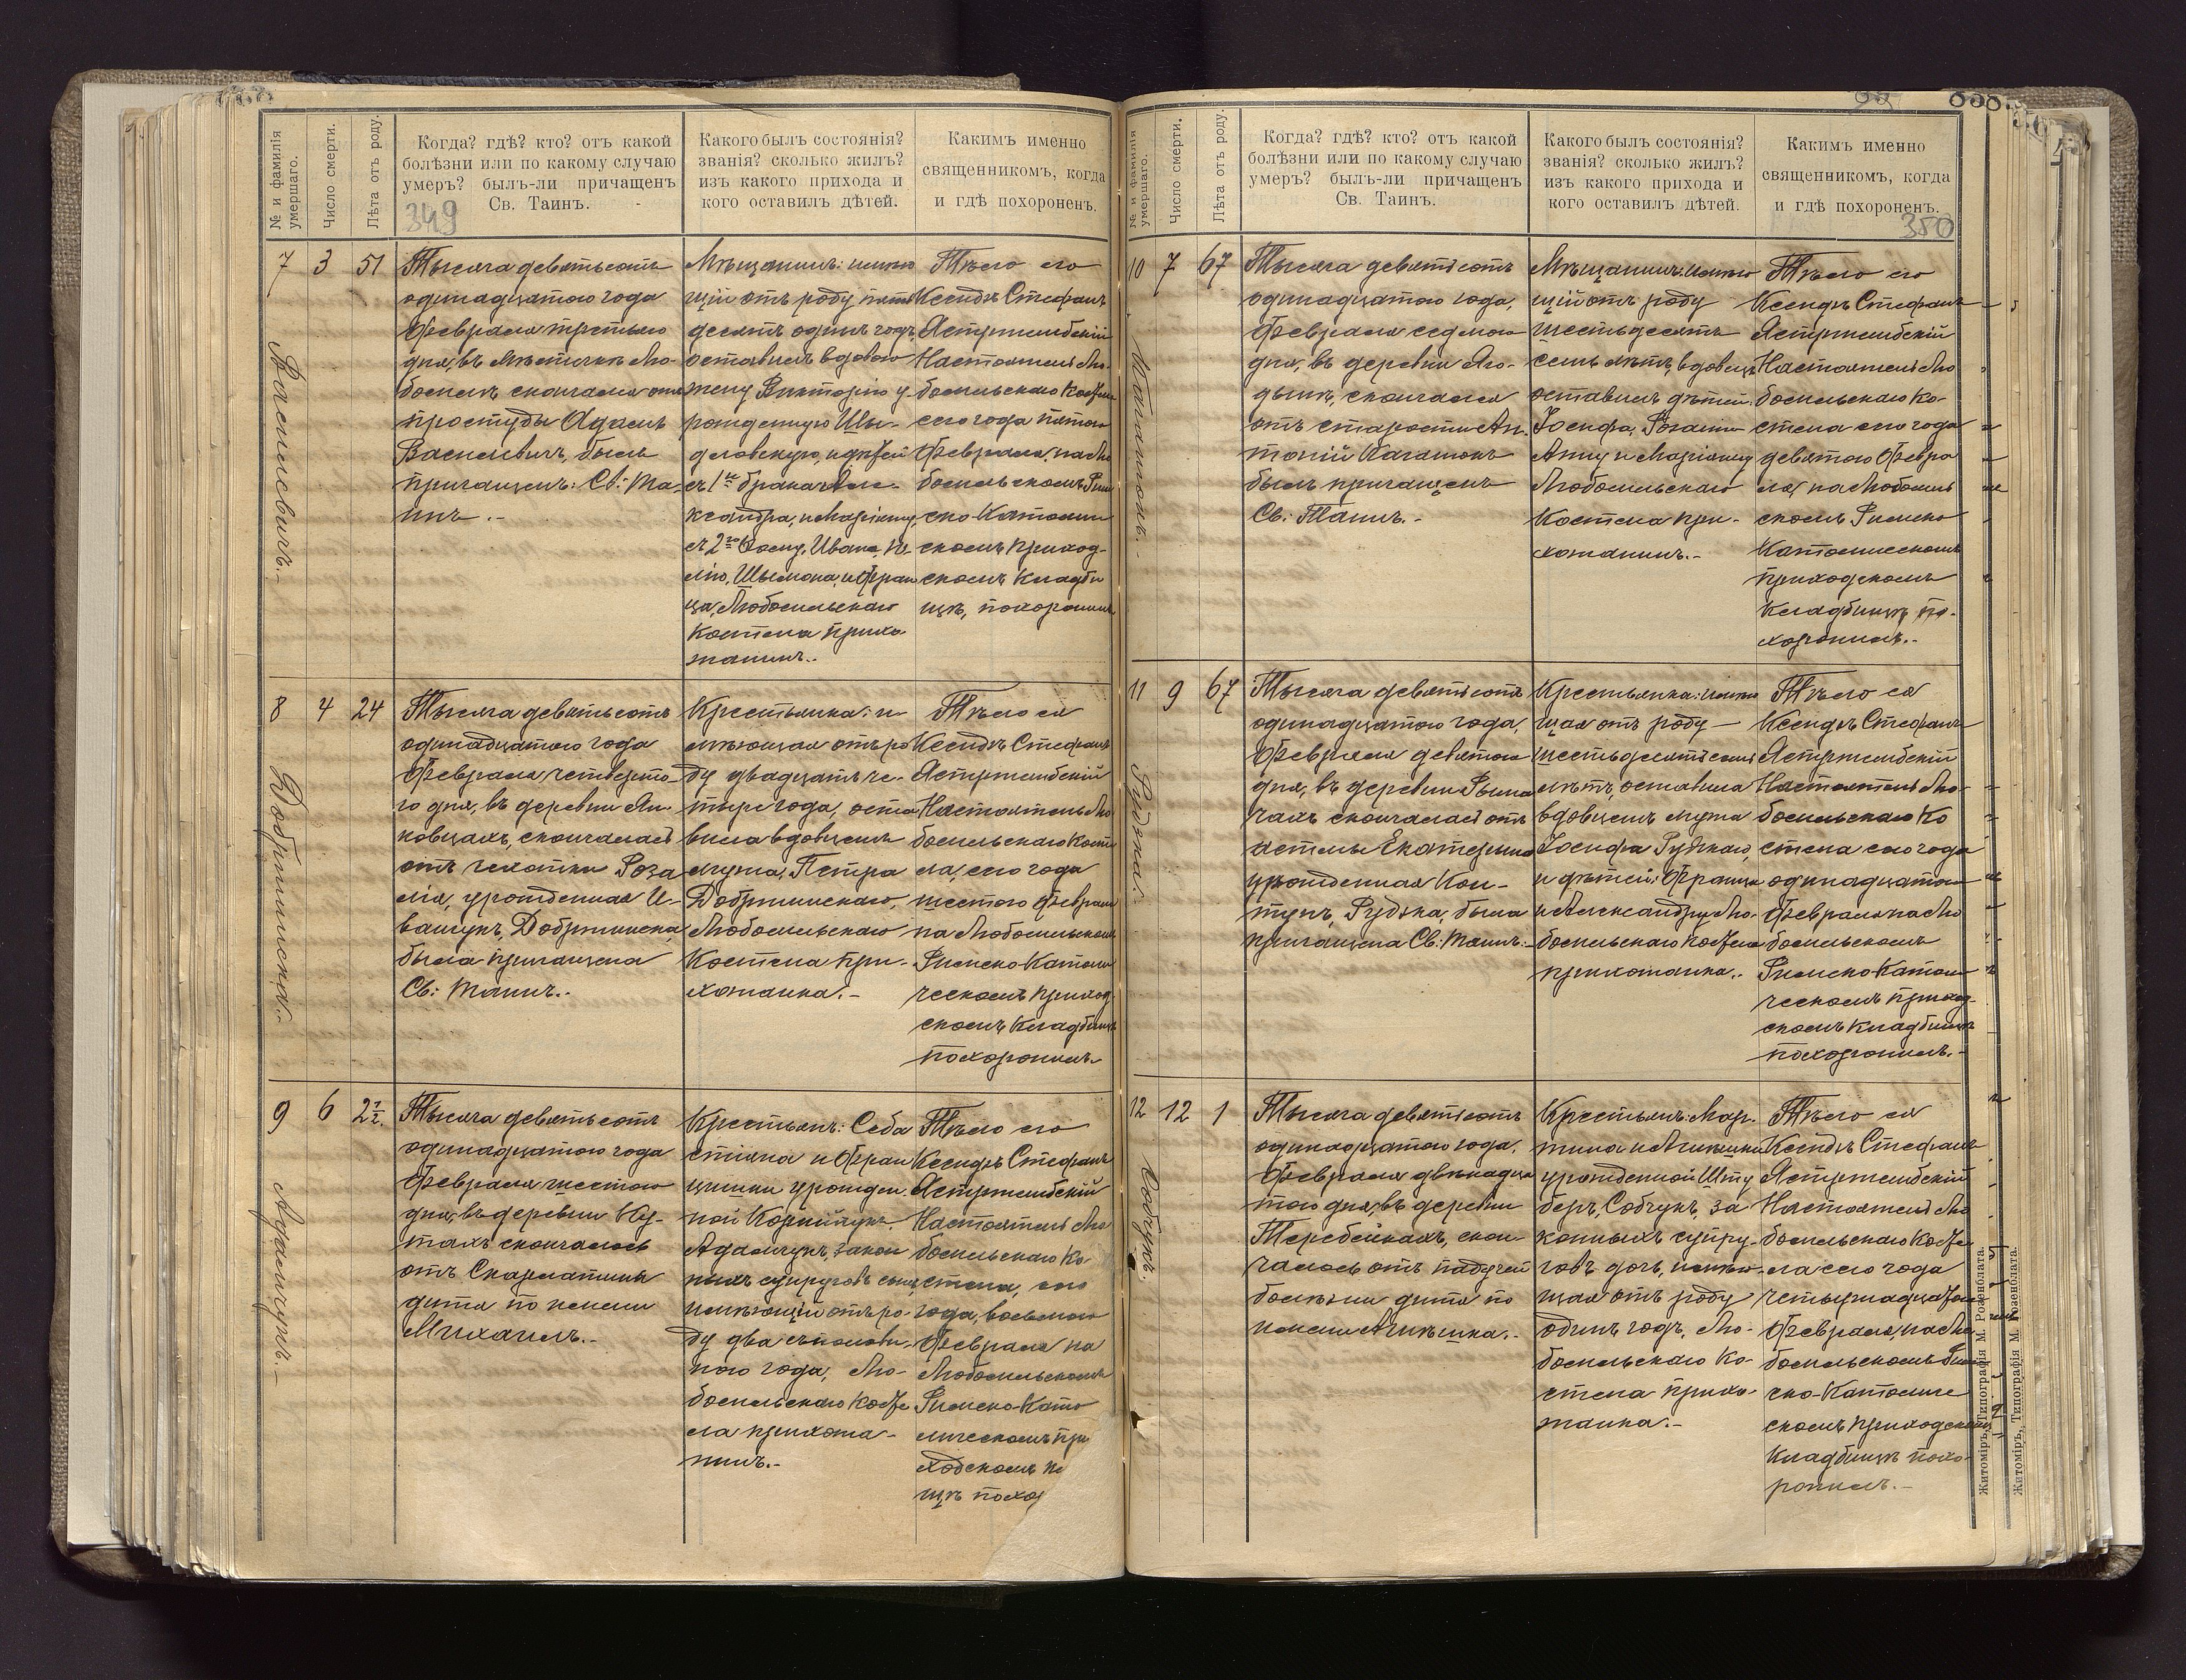 № и фамилія умершаго.
Число смерти.
Лѣта отъ роду.
Когда? гдѣ? кто? отъ какой
болѣзни или по какому случаю
умеръ? былъ-ли причащенъ
Св. Таинъ.
349
Какого былъ состоянія?
званія? сколько жилъ?
изъ какого прихода и
кого оставилъ дѣтей.
Какимъ именно
священникомъ, когда
и гдѣ похороненъ.
7
Василевичъ.-
3
51
Тысяча девятьсотъ
одинадцатого года
Февраля третьяго
дня, въ мѣстечкѣ Лю-
бомлѣ скончался отъ
простуды Адамъ
Василевичъ, былъ
причащенъ: Св: Та-
инъ.-
Мѣщанинъ: имѣю
щій отъ роду пять
десятъ одинъ годъ,
оставилъ вдовою
жену Викторію у-
рожденную Шы-
дловскую, и дѣтей
съ 1го брака Але-
ксандра, и Маріянну,
съ 2го
Ивана,
Шымона, и Фран
ца, Любомльскаго
Костела прихо-
жанинъ..
Тѣло его
Ксендзъ Стефанъ
Ястржембскій
Настоятель Лю-
бомльскаго Косте
сего года пятого
Февраля, на Лю
бомльскомъ Рим
ско Католич
скомъ приход-
скомъ Кладби
щѣ, похоронилъ
8
Добрышинска.-
4
24
Тысяча девятьсотъ
одинадцатого года
Февраля четверто-
го дня, въ деревни Ян
ковцахъ, скончалась
отъ чахотки Роза
лія, урожденная И-
ващукъ, Добрышинска,
была причащена
Св: Таинъ..
Крестьянка: и
мѣющая отъ ро
ду двадцать че-
тыре года, оста
вила вдовцемъ
мужа, Петра
Добрышинскаго,
Любомльскаго
Костела при-
хожанка.-
Тѣло ея
Ксендзъ Стефанъ
Ястржембскій
Настоятель Лю
бомльскаго Косте
ла, сего года
шестого Февраля
на Любомльскомъ
Римско Католи
ческомъ приход
скомъ Кладбищѣ
похоронилъ.
9
Адамчукъ.-
6
2½.
Тысяча девятьсотъ
одинадцатого года
Февраля шестого
дня, въ деревни Ку-
тахъ скончалось
отъ Скарлатины
дитя по имени
Михаилъ.-
Крестьянъ: Себа
стіяна и Фран
цишки урожден-
ной Корнійчукъ,
Адамчукъ, закон
ныхъ супруговъ сынъ,
имѣющій отъ ро-
ду два съ полови-
ною года, Лю-
бомльскаго Косте
ла прихожа-
нинъ.-
Тѣло его
Ксендзъ Стефанъ
Ястржембскій
Настоятель Лю
бомльскаго Ко-
стела, сего
года, восьмого
Февраля на
Любомльскомъ
Римско-Като
лическомъ при
ходскомъ К
щѣ похо
№ и фамилія умершаго.
Число смерти.
Лѣта отъ роду.
Когда? гдѣ? кто? отъ какой
болѣзни или по какому случаю
умеръ? былъ-ли причащенъ
Св. Таинъ.
Какого былъ состоянія?
званія? сколько жилъ?
изъ какого прихода и
кого оставилъ дѣтей.
Какимъ именно
священникомъ, когда
и гдѣ похороненъ.
350
10
7
67
Тысяча девятьсотъ
одинадцатого года,
Февраля седмого
дня, въ деревни Яго-
дынѣ, скончался
отъ старости Ан-
тоній
былъ причащенъ
Св: Таинъ.-
Мѣщанинъ: имѣю
щій отъ роду
шестьдесятъ
семь лѣтъ, вдовецъ
оставилъ дѣтей:
Іосифа,
Анну и Маріянну
Любомльскаго
Костела при-
хожанинъ.-
Тѣло его
Ксендзъ Стефанъ
Ястржембскій
Настоятель Лю
бомльскаго Ко-
стела сего года
девятого Февра
ля, на Любомль
скомъ Римско
Католическомъ
приходскомъ
Кладбищѣ по-
хоронилъ.-
11
Рудзка.-
9
67
Тысяча девятьсотъ
одинадцатого года,
Февраля девятого
дня, въ деревни Рыма
чахъ скончалась отъ
астмы Екатерина
урожденная Кон-
тунъ, Рудзка, была
причащена Св: Таинъ.-
Крестьянка: имѣю
щая отъ роду —
шестьдесятъ семь
лѣтъ, оставила
вдовцемъ мужа
Іосифа Рудзкаго,
и дѣтей: Франца
и Александру, Лю-
бомльскаго Костела
прихожанка..
Тѣло ея
Ксендзъ Стефанъ
Ястржембскій
Настоятель Лю-
бомльскаго Ко
стела сего года
одинадцатого
Февраля на Лю
бомльскомъ
Римско Католи
ческомъ приход-
скомъ Кладбищѣ
похоронилъ.-
12
Собчукъ.
12
1
Тысяча девятьсотъ
одинадцатого года,
Февраля двѣнадца
того дня, въ деревни
Теребейкахъ, скон-
чалось отъ падучей
болѣзни дитя по
имени Агнѣшка.-
Крестьянъ: Мар-
тина и Агнѣшки
урожденной Шту
беръ, Собчукъ, за
конныхъ супру-
говъ дочь, имѣю-
щая отъ роду
одинъ годъ, Лю-
бомльскаго Ко-
стела прихо-
жанка.-
Тѣло ея
Ксендзъ Стефанъ
Ястржембскій
Настоятель Лю
бомльскаго Косте
ла сего года
четырнадцатого
Февраля, на Лю
бомльскомъ Рим
ско-Католиче
скомъ приходскомъ
Кладбищѣ похо-
ронилъ.-
Житоміръ, Типографія М. Розенблата.
Житоміръ, Типографія М. Розенблата.